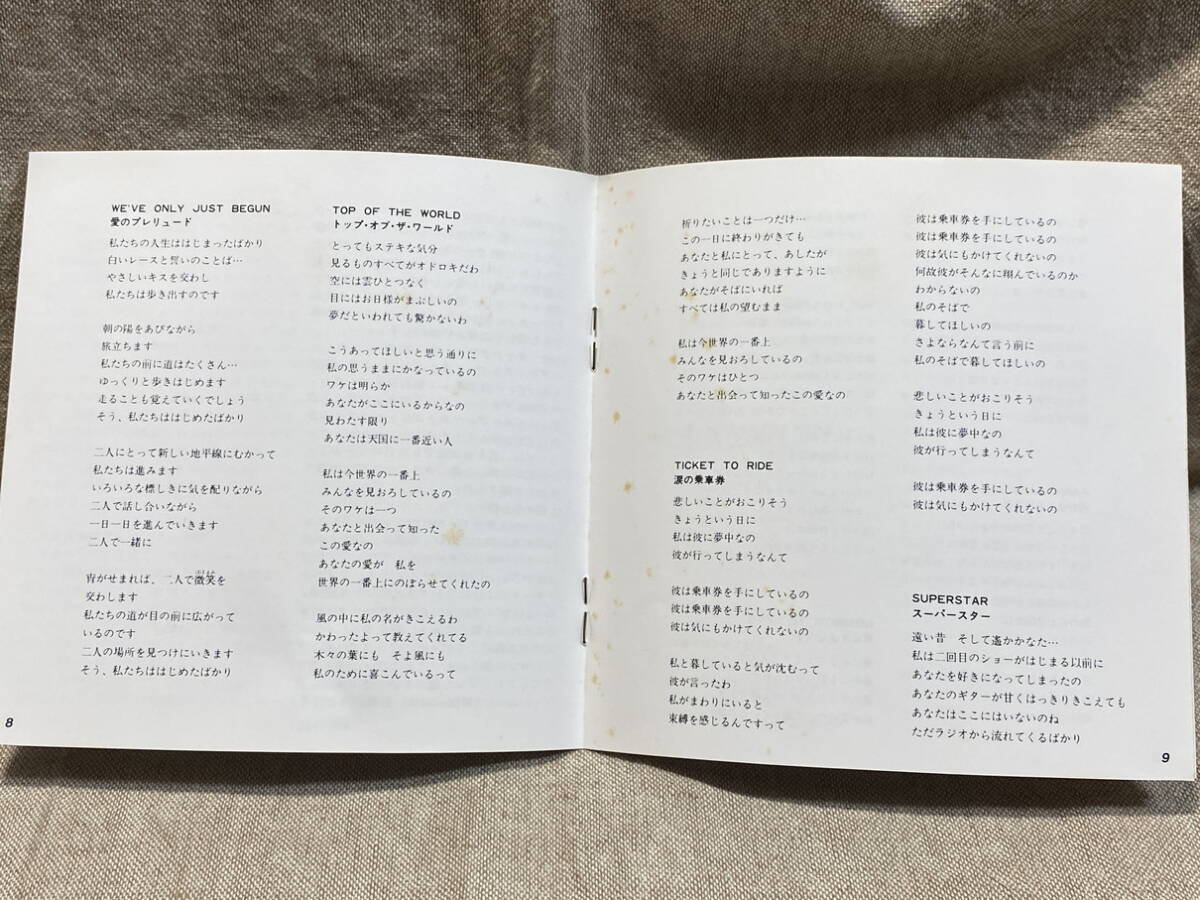 WE'VE ONLY JUST BEGUN
愛のプレリュード
私たちの人生ははじまったばかり
白いレースと誓いのことば…
やさしいキスを交わし
私たちは歩き出すのです
朝の陽をあびながら
旅立ちます
私たちの前に道はたくさん…
ゆっくりと歩きはじめます
走ることも覚えていくでしょう
そう、私たちははじめたばかり
二人にとって新しい地平線にむかって
私たちは進みます
いろいろな標しきに気を配りながら
二人で話し合いながら
一日一日を進んでいきます
二人で一緒に
宵がせまれば、二人で微笑を
交わします
私たちの道が目の前に広がって
いるのです
二人の場所を見つけにいきます
そう、私たちははじめたばかり
8
TOP OF THE WORLD
トップ・オブ・ザ・ワールド
とってもステキな気分
見るものすべてがオドロキだわ
空には雲ひとつなく
目にはお日様がまぶしいの
夢だといわれても驚かないわ
こうあってほしいと思う通りに
私の思うままにかなっているの
ワケは明らか
あなたがここにいるからなの
見わたす限り
あなたは天国に一番近い人
私は今世界の一番上
みんなを見おろしているの
そのワケは一つ
あなたと出会って知った
この愛なの
あなたの愛が 私を
世界の一番上にのぼらせてくれたの
風の中に私の名がきこえるわ
かわったよって教えてくれてる
木々の葉にも そよ風にも
私のために喜こんでいるって
祈りたいことは一つだけ…
この一日に終わりがきても
あなたと私にとって、あしたが
きょうと同じでありますように
あなたがそばにいれば
すべては私の望むまま
私は今世界の一番上
みんなを見おろしているの
そのワケはひとつ
あなたと出会って知ったこの愛なの
TICKET TO RIDE
涙の乗車券
悲しいことがおこりそう
きょうという日に
私は彼に夢中なの
彼が行ってしまうなんて
彼は乗車券を手にしているの
彼は乗車券を手にしているの
彼は気にもかけてくれないの
私と暮していると気が沈むって
彼が言ったわ
私がまわりにいると
束縛を感じるんですって
彼は乗車券を手にしているの
彼は乗車券を手にしているの
彼は気にもかけてくれないの
何故彼がそんなに翔んでいるのか
わからないの
私のそばで
暮してほしいの
さよならなんて言う前に
私のそばで暮してほしいの
悲しいことがおこりそう
きょうという日に
私は彼に夢中なの
彼が行ってしまうなんて
彼は乗車券を手にしているの
彼は気にもかけてくれないの
SUPERSTAR
スーパースター
遠い昔 そして遙かかなた…
私は二回目のショーがはじまる以前に
あなたを好きになってしまったの
あなたのギターが甘くはっきりきこえても
あなたはここにはいないのね
ただラジオから流れてくるばかり
9